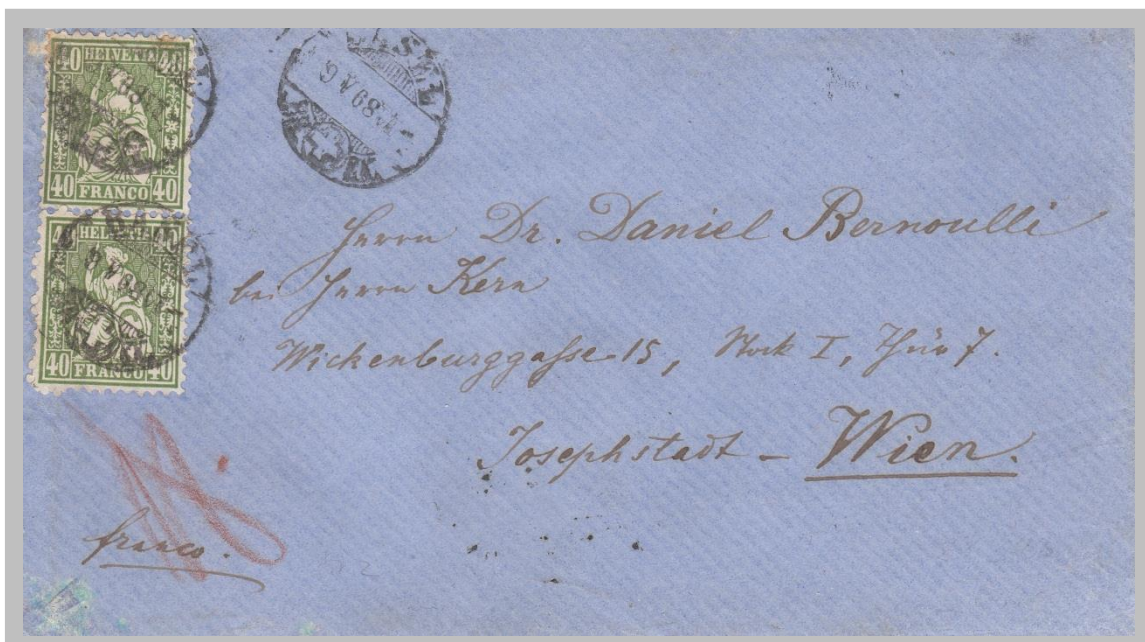 40 HELVETIA 40
40 FRANCO 40
HELVETIA
40 FRANCO 40
BASEL
Herrn Dr. Daniel Bernoulli
bei Herrn Kern
Wickenburggasse 15, Stock I, Thür 7.
Josephstadt – Wien.
franco.